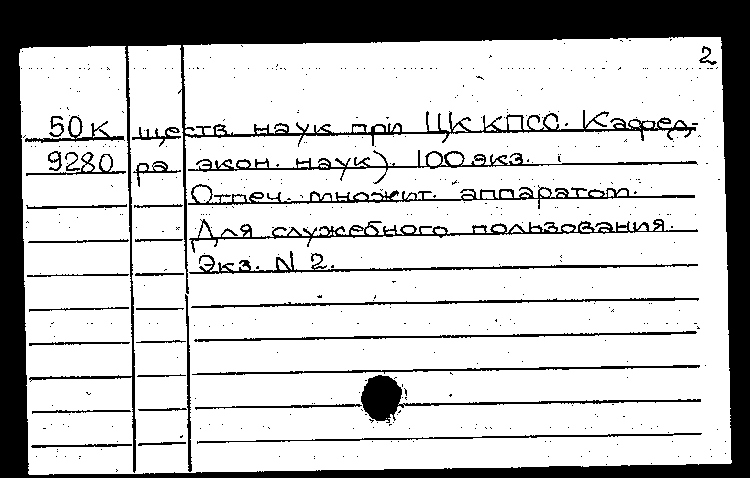 2
50К ществ. наук при ЦК КПСС. Кафед-
9280 ра экон. наук). 100 экз.
Отпеч. множит. аппаратом.
Для служебного пользования.
Экз. N 2.